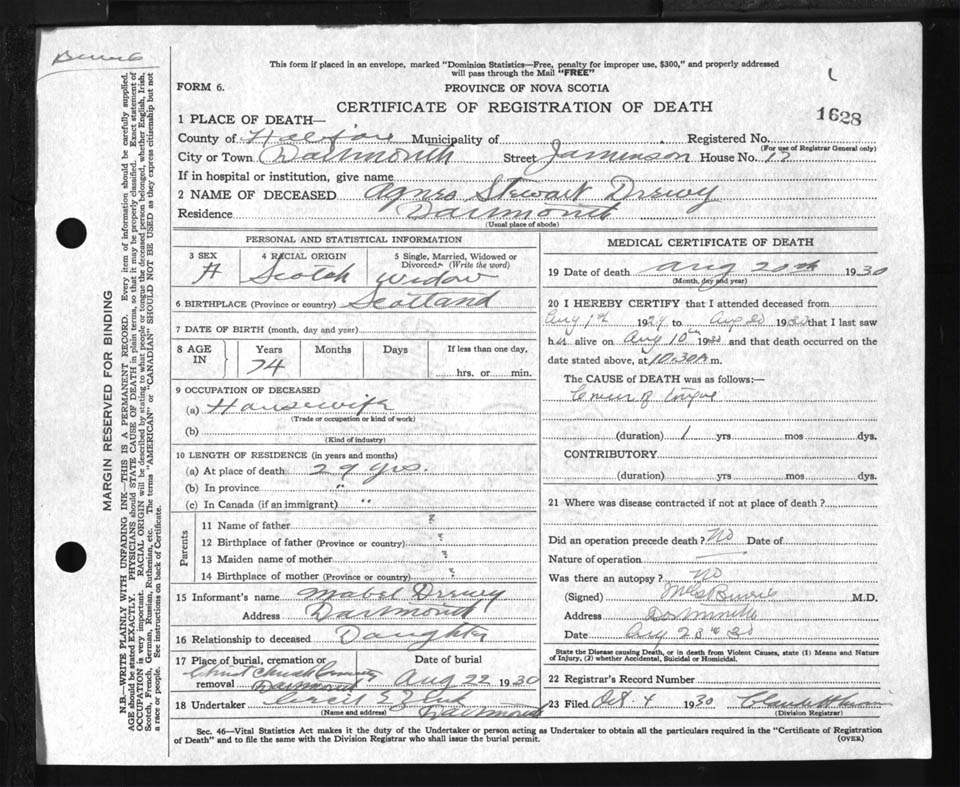 This form if placed in an envelope, marked "Dominion Statistics—Free, penalty for improper use, $300," and properly addressed
will pass through the Mail "FREE"
FORM 6.
PROVINCE OF NOVA SCOTIA
CERTIFICATE OF REGISTRATION OF DEATH
1628
1 PLACE OF DEATH—
County of Halifax Municipality of Registered No.
(For use of Registrar General only)
City or Town Dartmouth Street Jamieson House No. 15
If in hospital or institution, give name
2 NAME OF DECEASED Agnes Stewart Drewy
Residence Dartmouth
(Usual place of abode)
PERSONAL AND STATISTICAL INFORMATION
3 SEX 4 RACIAL ORIGIN 5 Single, Married, Widowed or Divorced. (Write the word)
Scotch Widow
6 BIRTHPLACE (Province or country) Scotland
7 DATE OF BIRTH (month, day and year)
8 AGE IN Years Months Days If less than one day,
74 hrs. or min.
9 OCCUPATION OF DECEASED
(a) Housewife
(Trade or occupation or kind of work)
(b)
(Kind of industry)
10 LENGTH OF RESIDENCE (in years and months)
(a) At place of death 29 yrs.
(b) In province "
(c) In Canada (if an immigrant) "
Parents
11 Name of father ?
12 Birthplace of father (Province or country) ?
13 Maiden name of mother ?
14 Birthplace of mother (Province or country) ?
15 Informant's name Mabel Drewy
Address Dartmouth
16 Relationship to deceased Daughter
17 Place of burial, cremation or removal Date of burial
Christ Church Cemetery Dartmouth Aug 22 1930
18 Undertaker Dartmouth
(Name and address)
MEDICAL CERTIFICATE OF DEATH
19 Date of death Aug 20th 1930
(Month, day and year)
20 I HEREBY CERTIFY that I attended deceased from
Aug 1st 1929 to Aug 20 1930 that I last saw
her alive on Aug 10th 1930 and that death occurred on the
date stated above, at 10.30 A m.
The CAUSE of DEATH was as follows:—
Cancer of tongue
(duration) 1 yrs mos dys.
CONTRIBUTORY
(duration) yrs mos dys.
21 Where was disease contracted if not at place of death?
Did an operation precede death? No Date of
Nature of operation
Was there an autopsy? No
(Signed) M.D.
Address Dartmouth
Date Aug 23rd 30
State the Disease causing Death, or in death from Violent Causes, state (1) Means and Nature
of Injury, (2) whether Accidental, Suicidal or Homicidal.
22 Registrar's Record Number
23 Filed Oct. 4 1930
(Division Registrar)
Sec. 46—Vital Statistics Act makes it the duty of the Undertaker or person acting as Undertaker to obtain all the particulars required in the "Certificate of Registration
of Death" and to file the same with the Division Registrar who shall issue the burial permit.
(OVER)
MARGIN RESERVED FOR BINDING
N.B.—WRITE PLAINLY WITH UNFADING INK—THIS IS A PERMANENT RECORD. Every item of information should be carefully supplied.
AGE should be stated EXACTLY. PHYSICIANS should STATE CAUSE OF DEATH in plain terms, so that it may be properly classified. Exact statement of
OCCUPATION is very important. RACIAL ORIGIN will be described by stating to what people or tongue the deceased person belonged, whether English, Irish,
Scotch, French, German, Russian, Ruthenian, etc. The terms "AMERICAN" or "CANADIAN" SHOULD NOT BE USED as they express citizenship but not
a race or people. See instructions on back of Certificate.